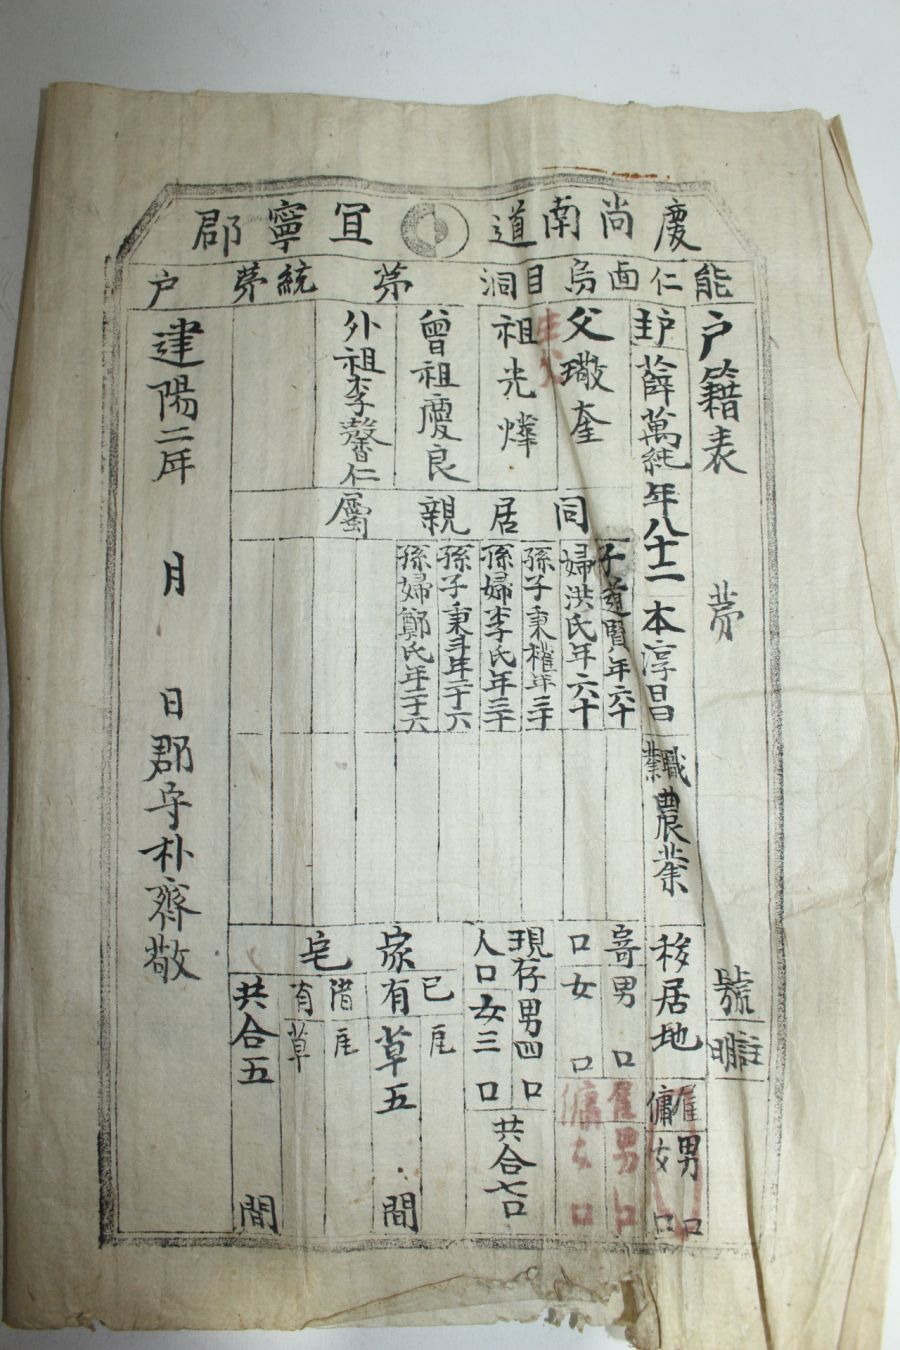 慶尚南道 宜寧郡
能仁面烏目洞 第 統 第 户
户籍表 第 號
户主 薛萬純 年八十二 本淳昌 職業 農業 移居地
雇男 口
傭女 口
父璥奎
生父
祖光燁
曾祖慶良
外祖李馨仁
同居親屬
子遵賢年六十
婦洪氏年六十
孫子秉權年三十
孫婦李氏年三十
孫子秉斗年二十六
孫婦鄭氏年二十六
寄男 口
口女 口
雇男 口
傭女 口
現存男四口
人口女三口
共合七口
家宅
已有 瓦
草五 間
借有 瓦
草
共合五 間
建陽二年 月 日 郡守朴齊敬